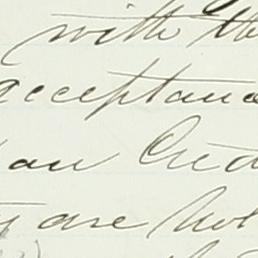 with the
acceptance
an Cred
y are not